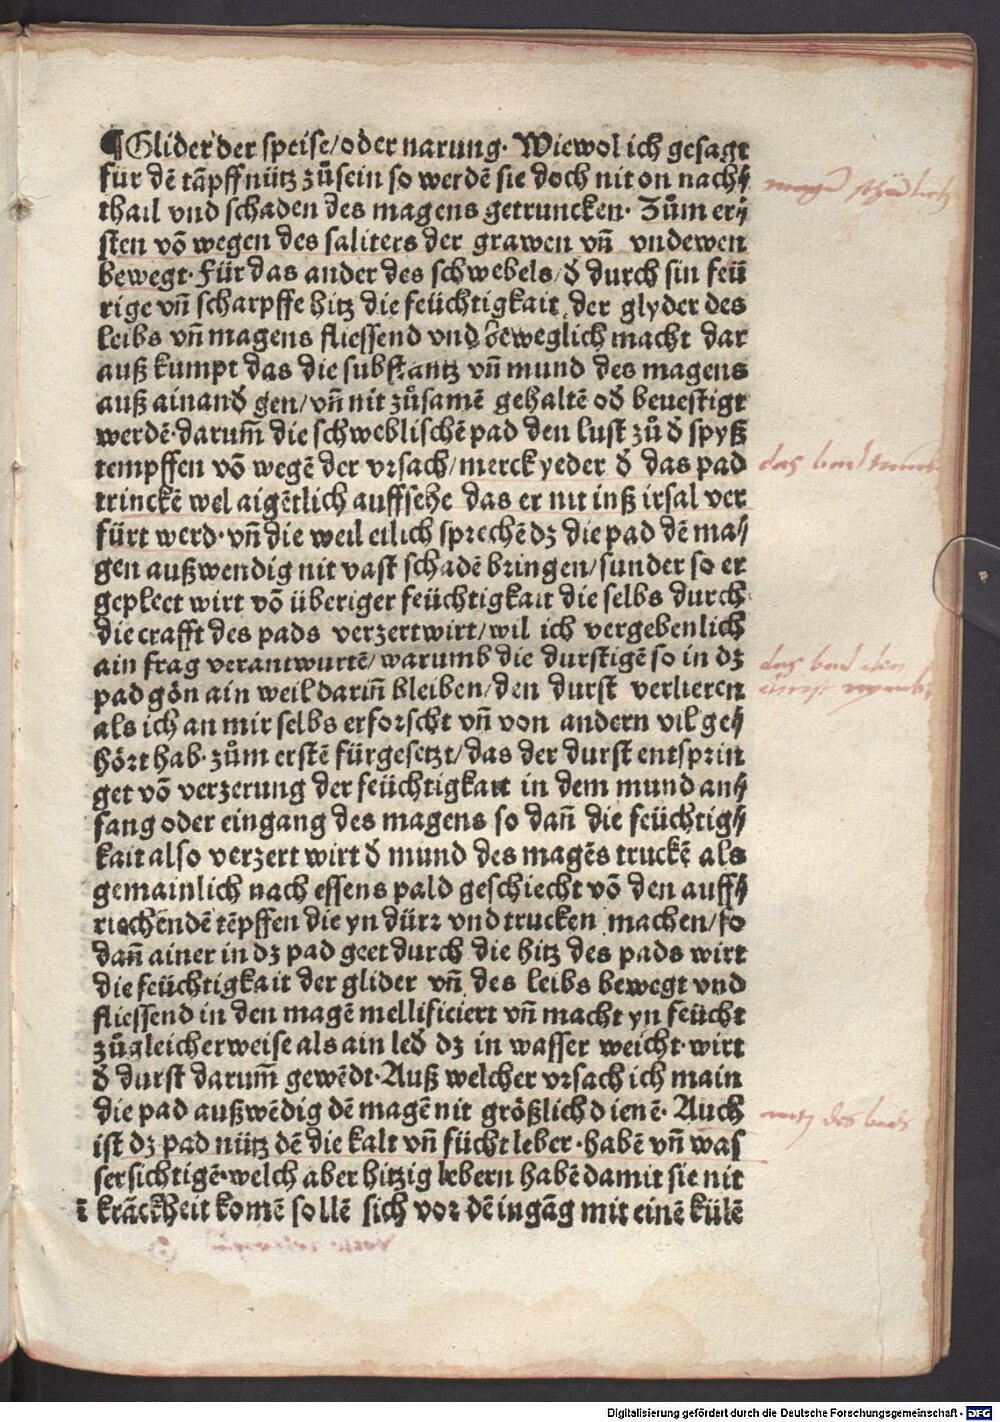 ¶Glider der speise/oder narung· Wiewol ich gesagt
für dē tāpff nütz zůsein so werdē sie doch nit on nach⸗
thail vnd schaden des magens getruncken· Zům er⸗
sten vō wegen des saliters der grawen vn̄ vndewen
bewegt· Für das ander des schwebels/đ durch sin feü
rige vn̄ scharpffe hitz die feüchtigkait der glyder des
leibs vn̄ magens fliessend vnd beweglich macht dar
auß kumpt das die substantz vn̄ mund des magens
auß ainanđ gen/vn̄ nit zůsamē gehaltē ođ beuestigt
werdē·darum̄ die schweblischē pad den lust zů đ spyß
tempffen vō wegē der vrsach/merck yeder đ das pad
trinckē wel aigētlich auffsehe das er nit inß irsal ver
fürt werd·vn̄ die weil etlich sprechē dz die pad dē ma⸗
gen außwendig nit vast schadē bringen/sunder so er
gepleet wirt vō überiger feüchtigkait die selbs durch
die crafft des pads verzert wirt/wil ich vergebenlich
ain frag verantwurtē/warumb die durstigē so in dz
pad gōn ain weil darin̄ bleiben/den durst verlieren
als ich an mir selbs erforscht vn̄ von andern vil ge⸗
hört hab·zům erstē fürgesetzt/das der durst entsprin
get vō verzerung der feüchtigkait in dem mund an⸗
fang oder eingang des magens so dan̄ die feüchtig⸗
kait also verzert wirt đ mund des magēs truckē als
gemainlich nach essens pald geschiecht vō den auff⸗
riechendē tēpffen die yn dürr vnd trucken machen/so
dan̄ ainer in dz pad geet durch die hitz des pads wirt
die feüchtigkait der glider vn̄ des leibs bewegt vnd
fliessend in den magē mellificiert vn̄ macht yn feücht
zůgleicherweise als ain leđ dz in wasser weicht·wirt
đ durst darum̄ gewēdt·Auß welcher vrsach ich main
die pad außwēdig dē magē nit größlich dienē· Auch
ist dz pad nütz dē die kalt vn̄ fücht leber·habē vn̄ was
sersichtigē·welch aber hitzig lebern habē damit sie nit
ī krāckheit komē sollē sich vor dē ingāg mit einē külē
das bad
das bad den
durst
nutz des bads
Digitalisierung gefördert durch die Deutsche Forschungsgemeinschaft - DFG